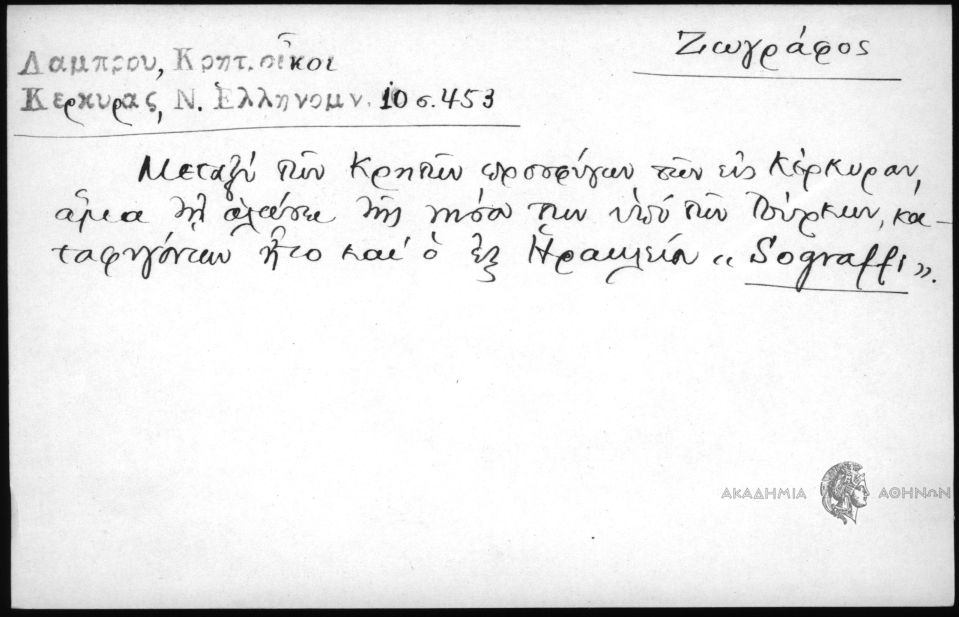 Ζωγράφος
Λαμπρου, Κρητ. οἶκοι
Κερκυρας, Ν. Ἑλληνομν. 10 σ. 453
Μεταξύ τῶν Κρητῶν προσφύγων τῶν εἰς Κέρκυραν,
ἅμα τῇ ἁλώσει τῆς νήσου των ὑπό τῶν Τούρκων, κα-
ταφυγόντων ἦτο καί ὁ ἐξ Ἡρακλείου « Sograffi ».
ΑΚΑΔΗΜΙΑ ΑΘΗΝΩΝ